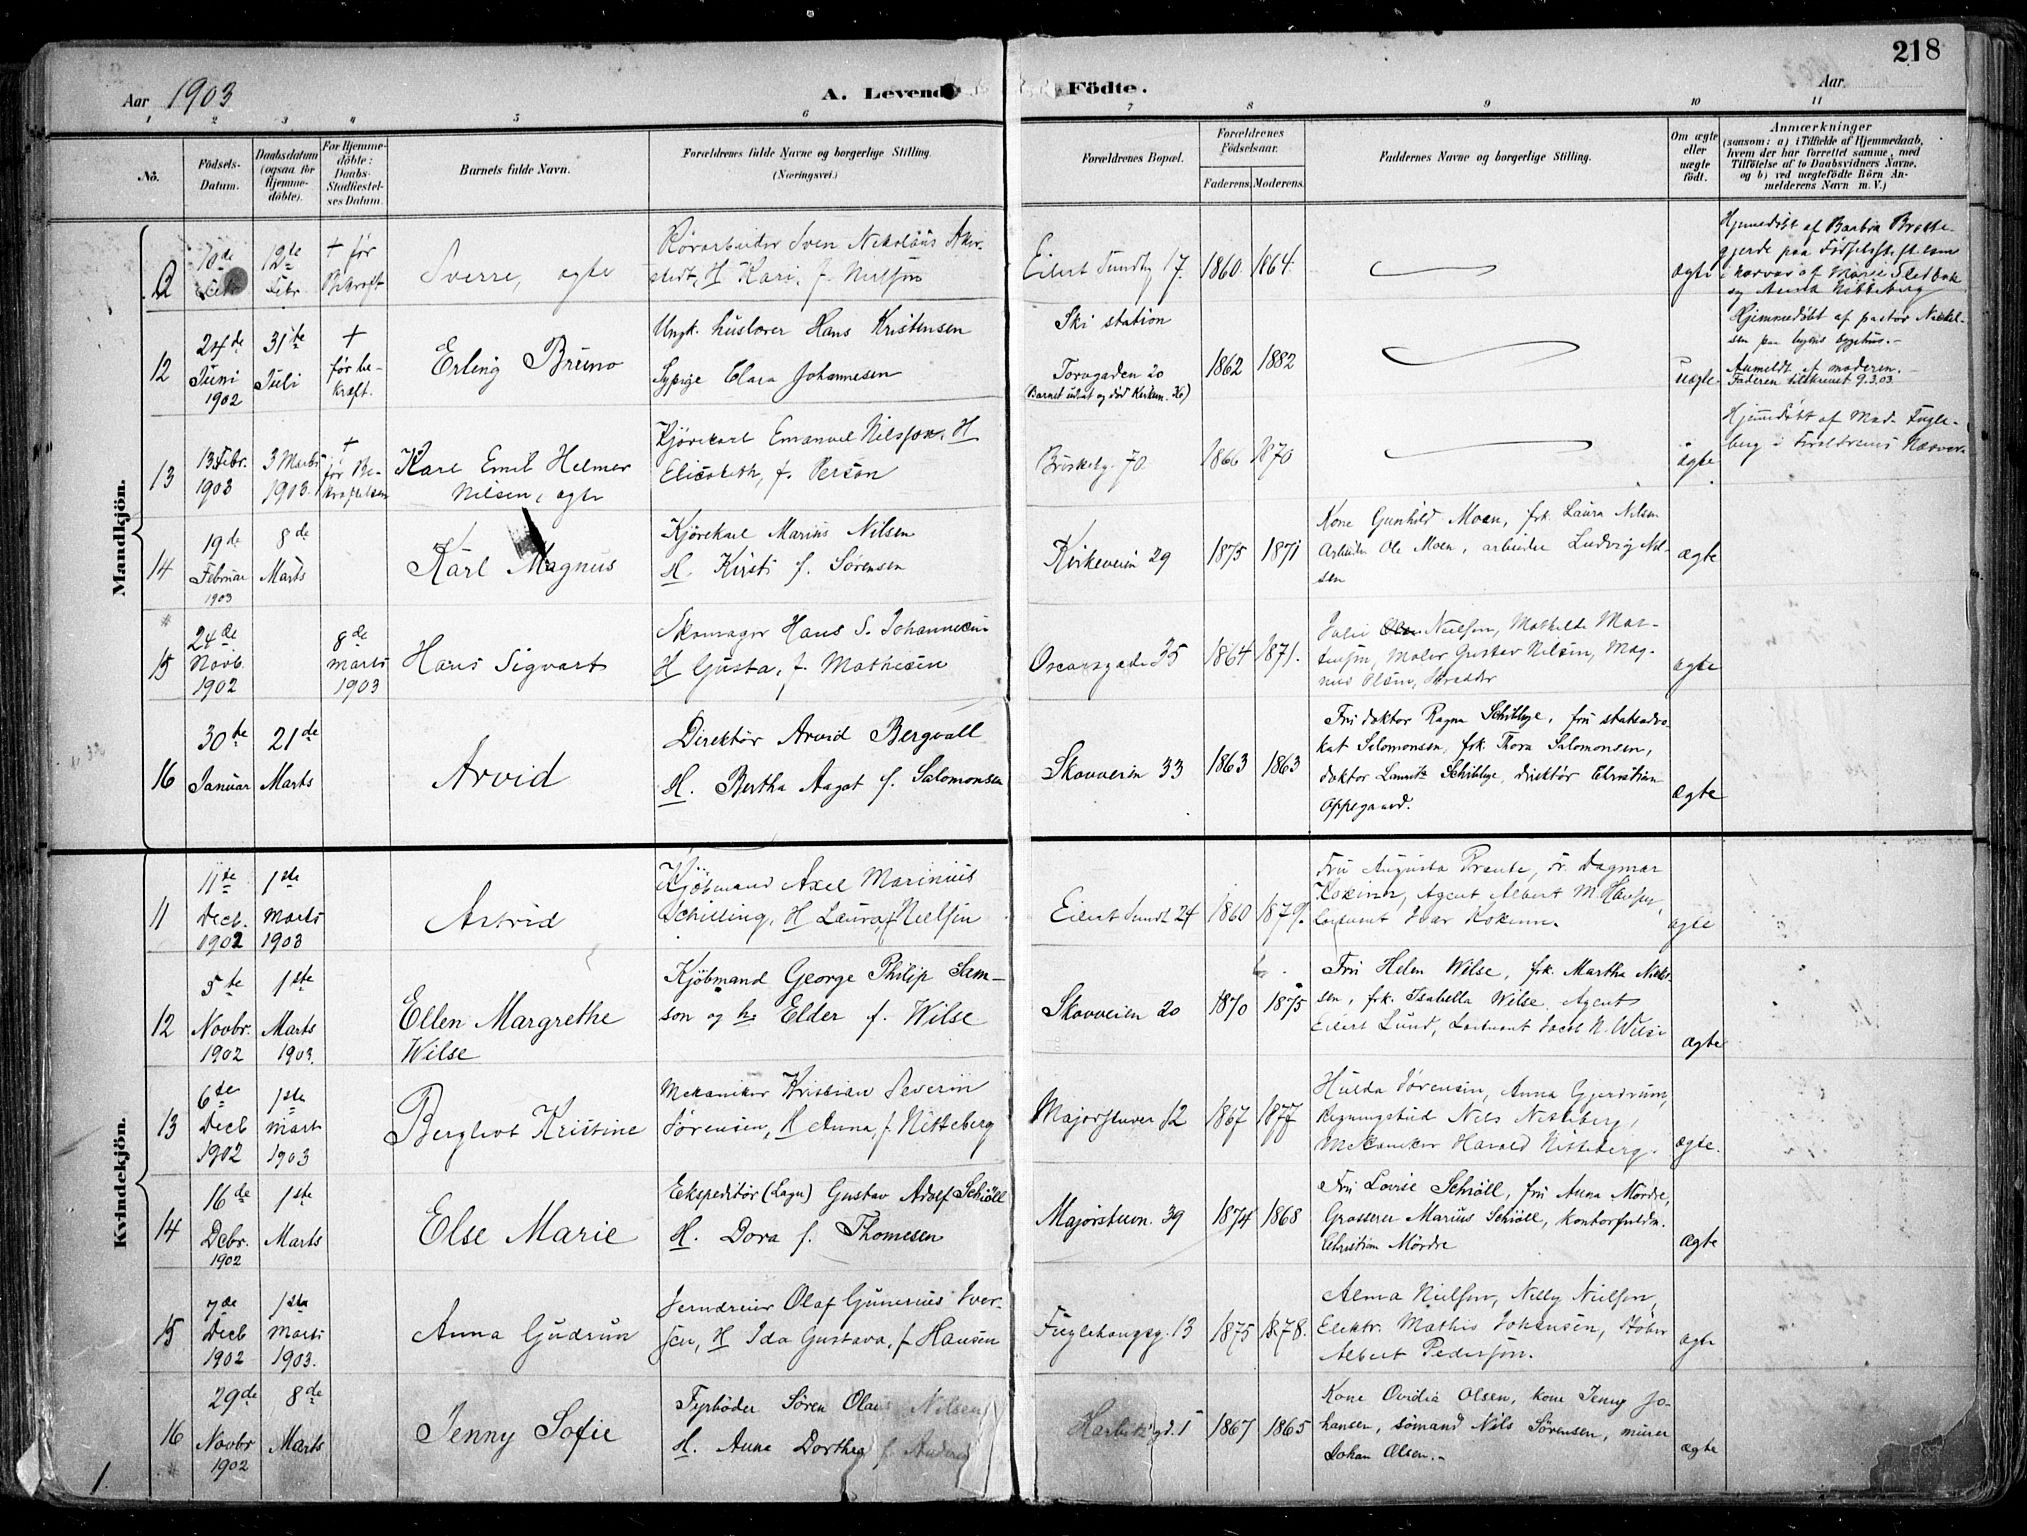 218
Aar 1903
A. Levende
Födte.
Aar
1 2 3 4 5 6 7 8 9 10 11
Nô.
Födsels-
Datum.
Daabsdatum
(ogsaa for
Hjemme-
döbte).
For Hjemme-
döbte:
Daabs-
Stadfæstel-
ses Datum.
Barnets fulde Navn.
Forældrenes fulde Navne og borgerlige Stilling.
(Næringsvei.)
Forældrenes Bopæl.
Forældrenes
Födselsaar.
Faderens. Moderens.
Faddernes Navne og borgerlige Stilling.
Om ægte
eller
uægte
födt.
Anmærkninger
(saasom: a) i Tilfælde af Hjemmedaab,
hvem der har forrettet samme, med
Tilföielse af to Daabsvidners Navne,
og b) ved uægtefödte Börn An-
melderens Navn m. V.)
Mandkjön.
10de
Febr
12te
Febr.
+ før
Bekræft
Sverre, ægte
Rørarbeider Sven Nikolaus Aker-
stedt, H Kari f. Nielsen
Eilert Sundtsg 17.
1860 1864.
ægte
Hjemmedøbt af Barbra Brotte-
gjerde paa Fødselsstiftelsen
i nærvær af Marie Sletbak
og Anna Nitteberg
12
24de
Juni
1902
31te
Juli
+
før be-
kræft.
Erling Bruno
Ungk. huslærer Hans Kristensen
Sypige Clara Johannesen
Ski station
Torvgaden 20
(Barnet udsat og død Kirkev. 26)
1862 1882
uægte
Hjemmedøbt af pastor Nickel-
sen paa byens sygehus.-
Anmeldt af moderen.-
Faderen tilskrevet 9.3.03.
13
13 Febr.
1903
3 Marts
1903.
+
før Be-
kræftelsen
Karl Emil Helmer
Nilsen, ægte
Kjørekarl Emanuel Nilsson, H
Elisabeth, f. Person
Briskebg. 70
1866 1870
ægte
Hjemdøbt af Mad. Fugle-
berg i Forældrenes Nærvær.
14
19de
Februar
1903
8de
Marts
Karl Magnus
Kjørekarl Marius Nilsen
H. Kirsti f. Sørensen
Kirkeveien 29
1875 1871
Kone Gunhild Moen, frk. Laura Nilsen
Arbeider Ole Moen, arbeider Ludvig Nil-
sen
ægte
15
24de
Novb.
1902
8de
marts
1903
Hans Sigvart
Skomager Hans S. Johannesen
H Gusta, f. Mathisen
Oscarsgade 35
1864 1871.
Julie Nielsen, Mathilde Mar-
tinsen, Maler Gustav Nilsen, Mag-
nus Olsen, Skrædder
ægte
16
30te
Januar
21de
Marts
Arvid
Direktør Arvid Bergvall
H. Bertha Aagot f. Salomonsen
Skovveien 33
1863 1863
Fru doktor Ragna Schibbye, fru statsadvo-
kat Salomonsen, frk. Thora Salomonsen,
doktor Lauritz Schibbye, direktør Christian
Oppegaard.
ægte
Kvindekjön.
11
11te
Decb.
1902
1ste
Marts
1903
Astrid
Kjøbmand Axel Marinius
Schilling, H Laura, f Nielsen
Eilert Sundt 24
1860 1879.
Fru Augusta Prante, Fr. Dagmar
Kokinn, Agent Albert M. Hansen,
Løitnant Ivar Kokinn.
ægte
12
5te
Novbr.
1902
1ste
Marts
1903.
Ellen Margrethe
Wilse
Kjøbmand George Philip Sam-
son og h. Elder f. Wilse
Skovveien 20
1870 1875
Fru Helen Wilse, frk. Martha Niel-
sen, frk. Isabella Wilse, Agent
Eilert Lund, Løitnant Jacob N. Wilse
ægte
13
6te
Decb
1902
1ste
mart
1903
Bergliot Kristine
Mekaniker Kristian Severin
Sørensen, H Anna, f. Nitteberg
Majorstuver 12
1867 1877
Hulda Sørensen, Anna Gjerdrum,
Nils Nitteberg,
Mekaniker Harald Nitteberg.
ægte.
14
16de
Debr.
1902
1ste
Marts
Else Marie
Eekspeditør (Lager) Gustav Adolf Schiøll
H. Dora f. Thomesen
Majorstuen. 39
1874 1868
Fru Lovise Schiøll, fru Anna Mørdre,
Grosserer Marius Schiøll, kontorfuldm.
Christian Mørdre
ægte
15
7de
Decb
1902
1ste
Marts
1903.
Anna Gudrun
Jerndreier Olaf Gunerius Iver-
sen, H Ida Gustava, f Hansen
Fuglehaugsg. 13
1875 1878.
Alma Nielsen, Nelly Nielsen,
Elektr. Mathis Johansen, Støber
Albert Pedersen.
ægte
16
29de
Novbr
1902
8de
Marts
Jenny Sofie
Fyrbøder Søren Olaus Nilsen
H. Anna Dorthea f. Anders
Harbitzgd. 1
1867 1865
Kone Ovidia Olsen, kone Jenny Jo-
hansen, sømand Nils Sørensen, murer
Johan Olsen.-
ægte